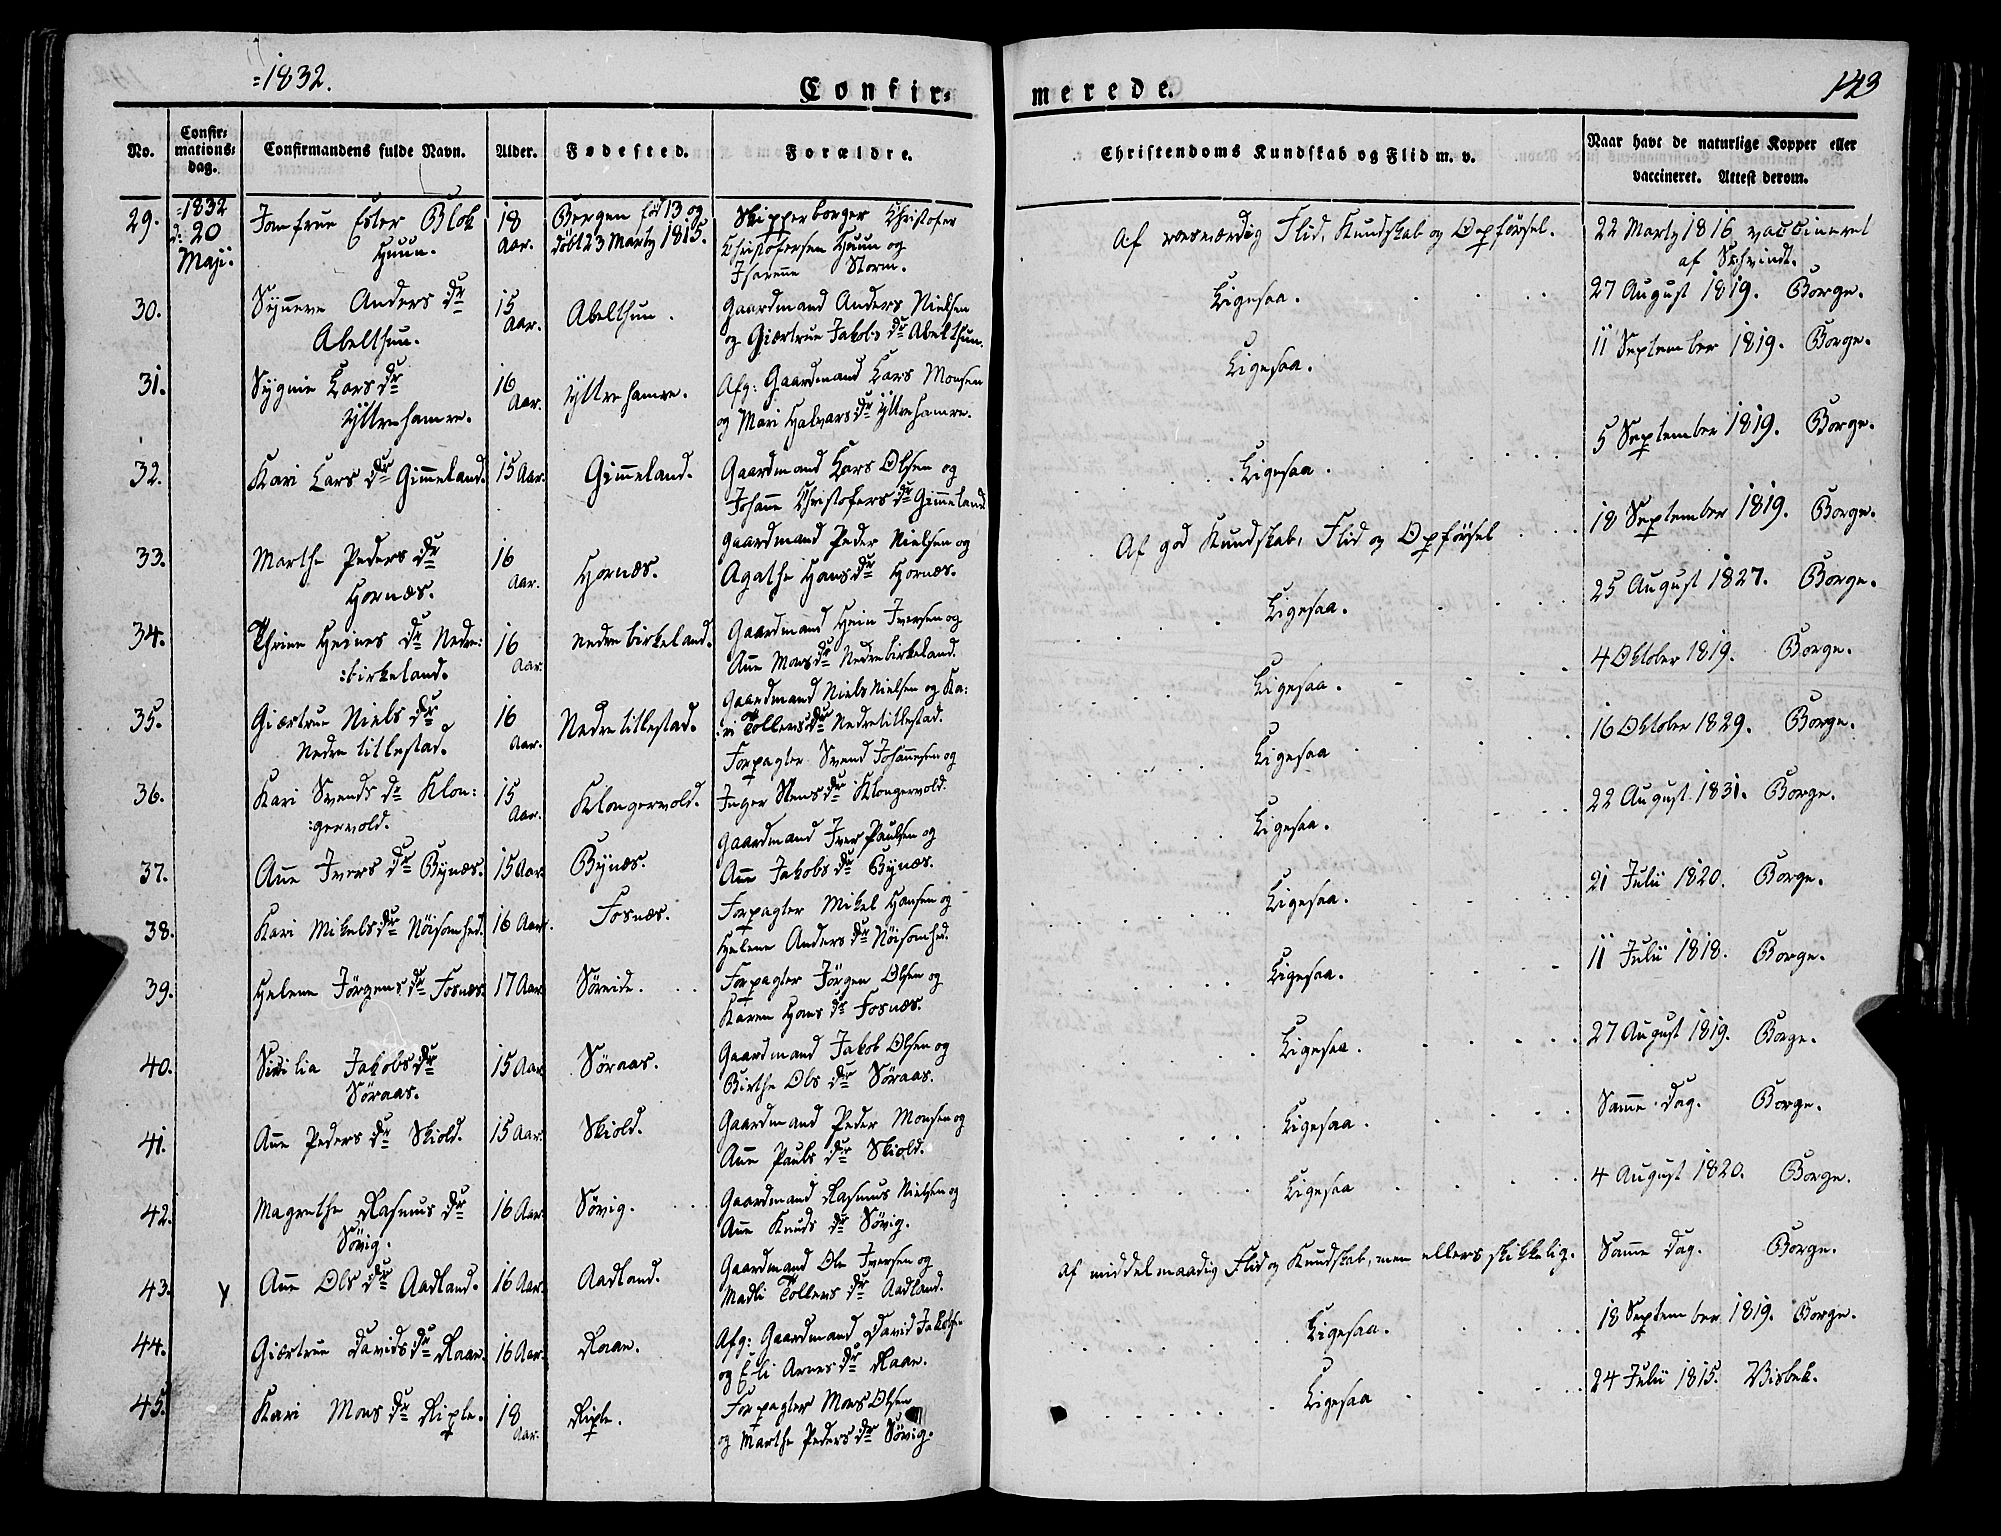 =1832.
Confir=
merede.
143
No.
Confir=
mations=
dag.
Confirmandens fulde Navn.
Alder.
Fødested.
Forældre.
Christendoms Kundskab og Flid m. v.
Naar havt de naturlige Kopper eller
vaccineret. Attest derom.
29.
=1832
d: 20
Maji.
Jomfrue Ester Blok
Huun.
18
Aar.
Bergen før 13 og
døbt 23 Marty 1815.
Skipperborger Christofer
Christofersen Huun og
Storm.
Af roesværdig Flid, Kundskab og Opførsel.
22 Marty 1816 vaccineret
af Schvindt.
30.
Synneve Anders dr
Abelthun.
15
Aar.
Abelthun.
Gaardmand Anders Nielsen
og Giærtrue Jakobs dr Abelthun.
Ligesaa.
27 August 1819. Borge.
31.
Sygnie Lars dr
Yttrehamre.
16
Aar.
Yttrehamre.
Afg: Gaardmand Lars Monsen
og Mari Halvars dr Yttrehamre.
Ligesaa.
11 September 1819. Borge.
32.
Kari Lars dr Gim̄eland.
15 Aar.
Gim̄eland.
Gaardmand Lars Olsen og
Johan̄e Christofers dr Gim̄eland
Ligesaa.
5 September 1819. Borge.
33.
Marthe Peders dr
Hornæs.
16
Aar.
Hornæs.
Gaardmand Peder Nielsen og
Agathe Hans dr Hornæs.
Af god Kundskab, Flid og Opførsel
18 September 1819. Borge.
34.
Thrine Heines dr Nedre:
:birkeland.
16
Aar.
Nedrebirkeland.
Gaardmand Hein Iversen og
An̄e Mons dr Nedrebirkeland.
Ligesaa.
25 August 1827. Borge.
35.
Giærtrue Niels dr
Nedretitlestad.
16
Aar.
Nedretitlestad.
Gaardmand Niels Nielsen og Ka:
:ri Tollens dr Nedretitlestad.
Ligesaa.
4 Oktober 1819. Borge.
36.
Kari Svends dr Klon:
:gervold.
15
Aar.
Klongervold.
Forpagter Svend Johan̄esen og
Inger Stens dr Klongervold.
Ligesaa
16 Oktober 1829. Borge.
37.
An̄e Ivers dr Bynæs.
15 Aar.
Bynæs.
Gaardmand Iver Paulsen og
An̄e Jakobs dr Bynæs.
Ligesaa.
22 August 1831. Borge.
38.
Kari Mikels dr Nöisomhed.
16 Aar.
Fosnæs.
Forpagter Mikel Hansen og
Helene Anders dr Nöisomhed.
Ligesaa.
21 Julii 1820. Borge.
39.
Helene Jörgens dr Fosnæs.
17 Aar.
Söreide.
Forpagter Jörgen Olsen og
Karen Hans dr Fosnæs.
Ligesaa.
11 Julii 1818. Borge.
40.
Sisilia Jakobs dr
Söraas.
15 Aar.
Söraas.
Gaardmand Jakob Olsen og
Birthe Ols dr Söraas.
Ligesaa.
27 August 1819. Borge.
41.
An̄e Peders dr Skiold.
15 Aar.
Skiold.
Gaardmand Peder Monsen og
An̄e Pauls dr Skiold.
Ligesaa.
Sam̄e Dag. Borge.
42.
Magrethe Rasmus dr
Sövig.
16 Aar.
Sövig.
Gaardmand Rasmus Nielsen og
An̄e Knuds dr Sövig.
Ligesaa
4 August 1820. Borge.
43.
An̄e Ols dr Aadland.
16 Aar.
Aadland.
Gaardmand Ole Iversen og
Madli Tollens dr Aadland.
Af middelmaadig Flid og Kundskab, men ellers skikkelig.
Sam̄e Dag. Borge.
44.
Giærtrue Davids dr Raae.
16 Aar.
Raae.
Afg: Gaardmand David Jakobs.
og Eli Arnes dr Raae.
Ligesaa.
18 September 1819. Borge.
45.
Kari Mons dr Riple.
18
Aar.
Riple.
Forpagter Mons Olsen
og Marthe Peders dr Sövig.
Ligesaa
24 Julii 1815. Visbek.